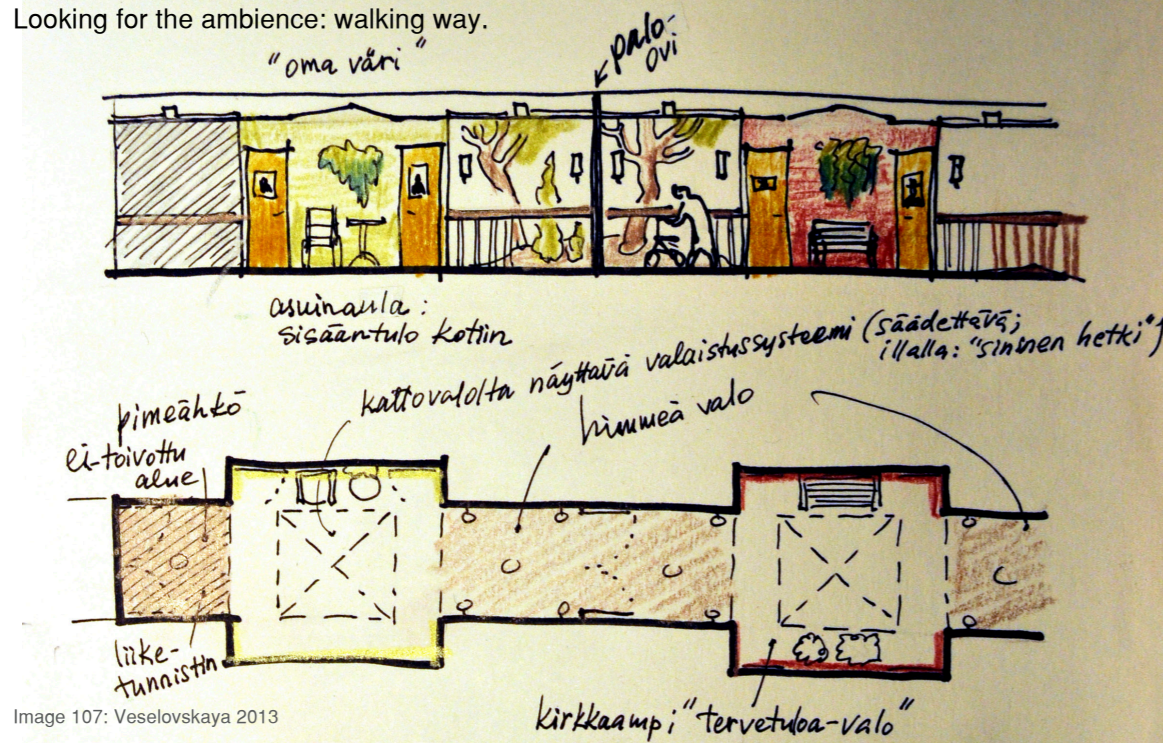 Looking for the ambience: walking way.
"oma väri"
palo-
ovi
asuinaula:
sisääntulo kotiin
kattovalolta näyttävä valaistussysteemi (säädettävä;
illalla: "sininen hetki")
himmeä valo
pimeähkö
ei-toivottu
alue
liike-
tunnistin
kirkkaampi "tervetuloa-valo"
Image 107: Veselovskaya 2013